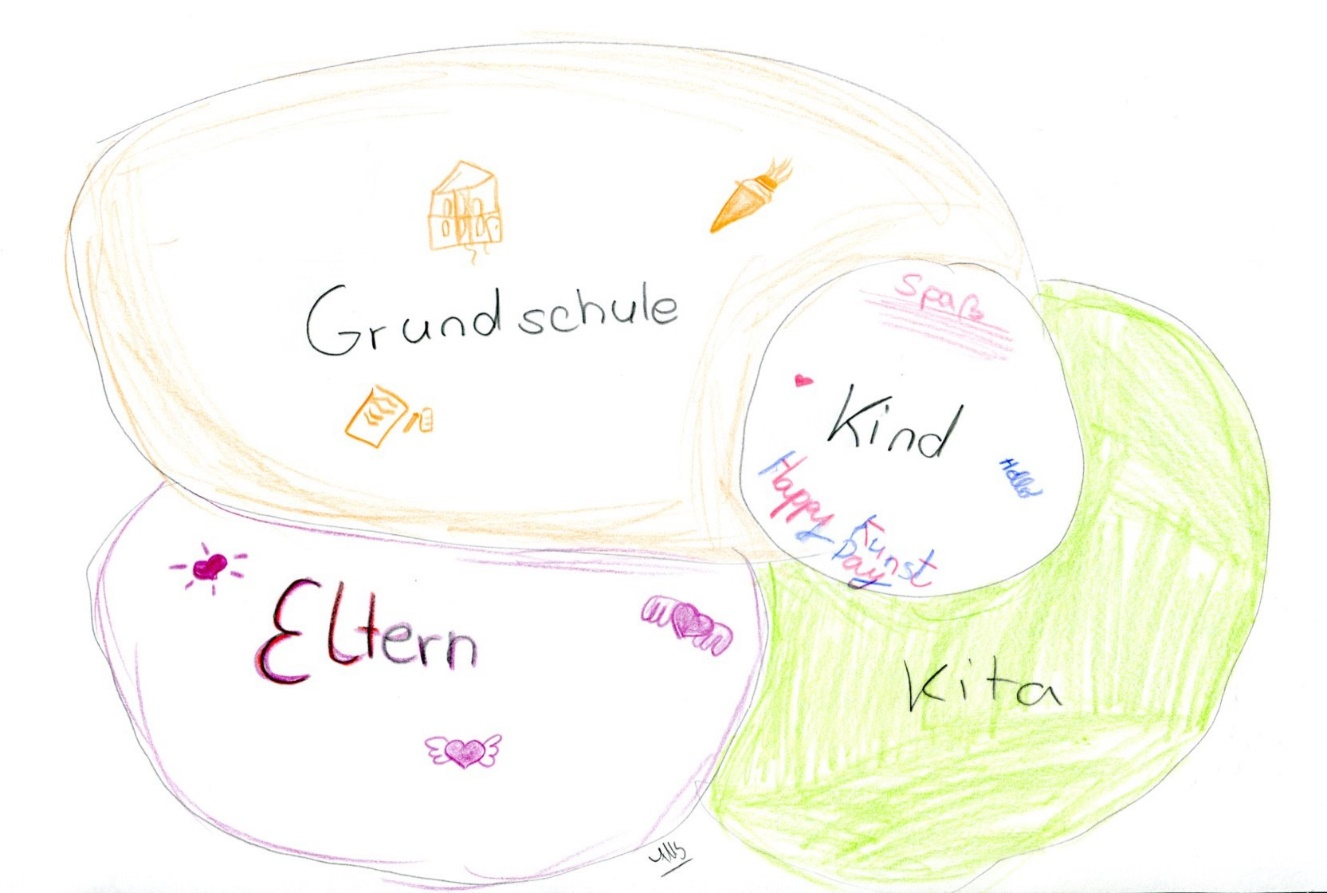 Grundschule
Spaß
Kind
Hello
Happy
Kunst
Day
Eltern
Kita